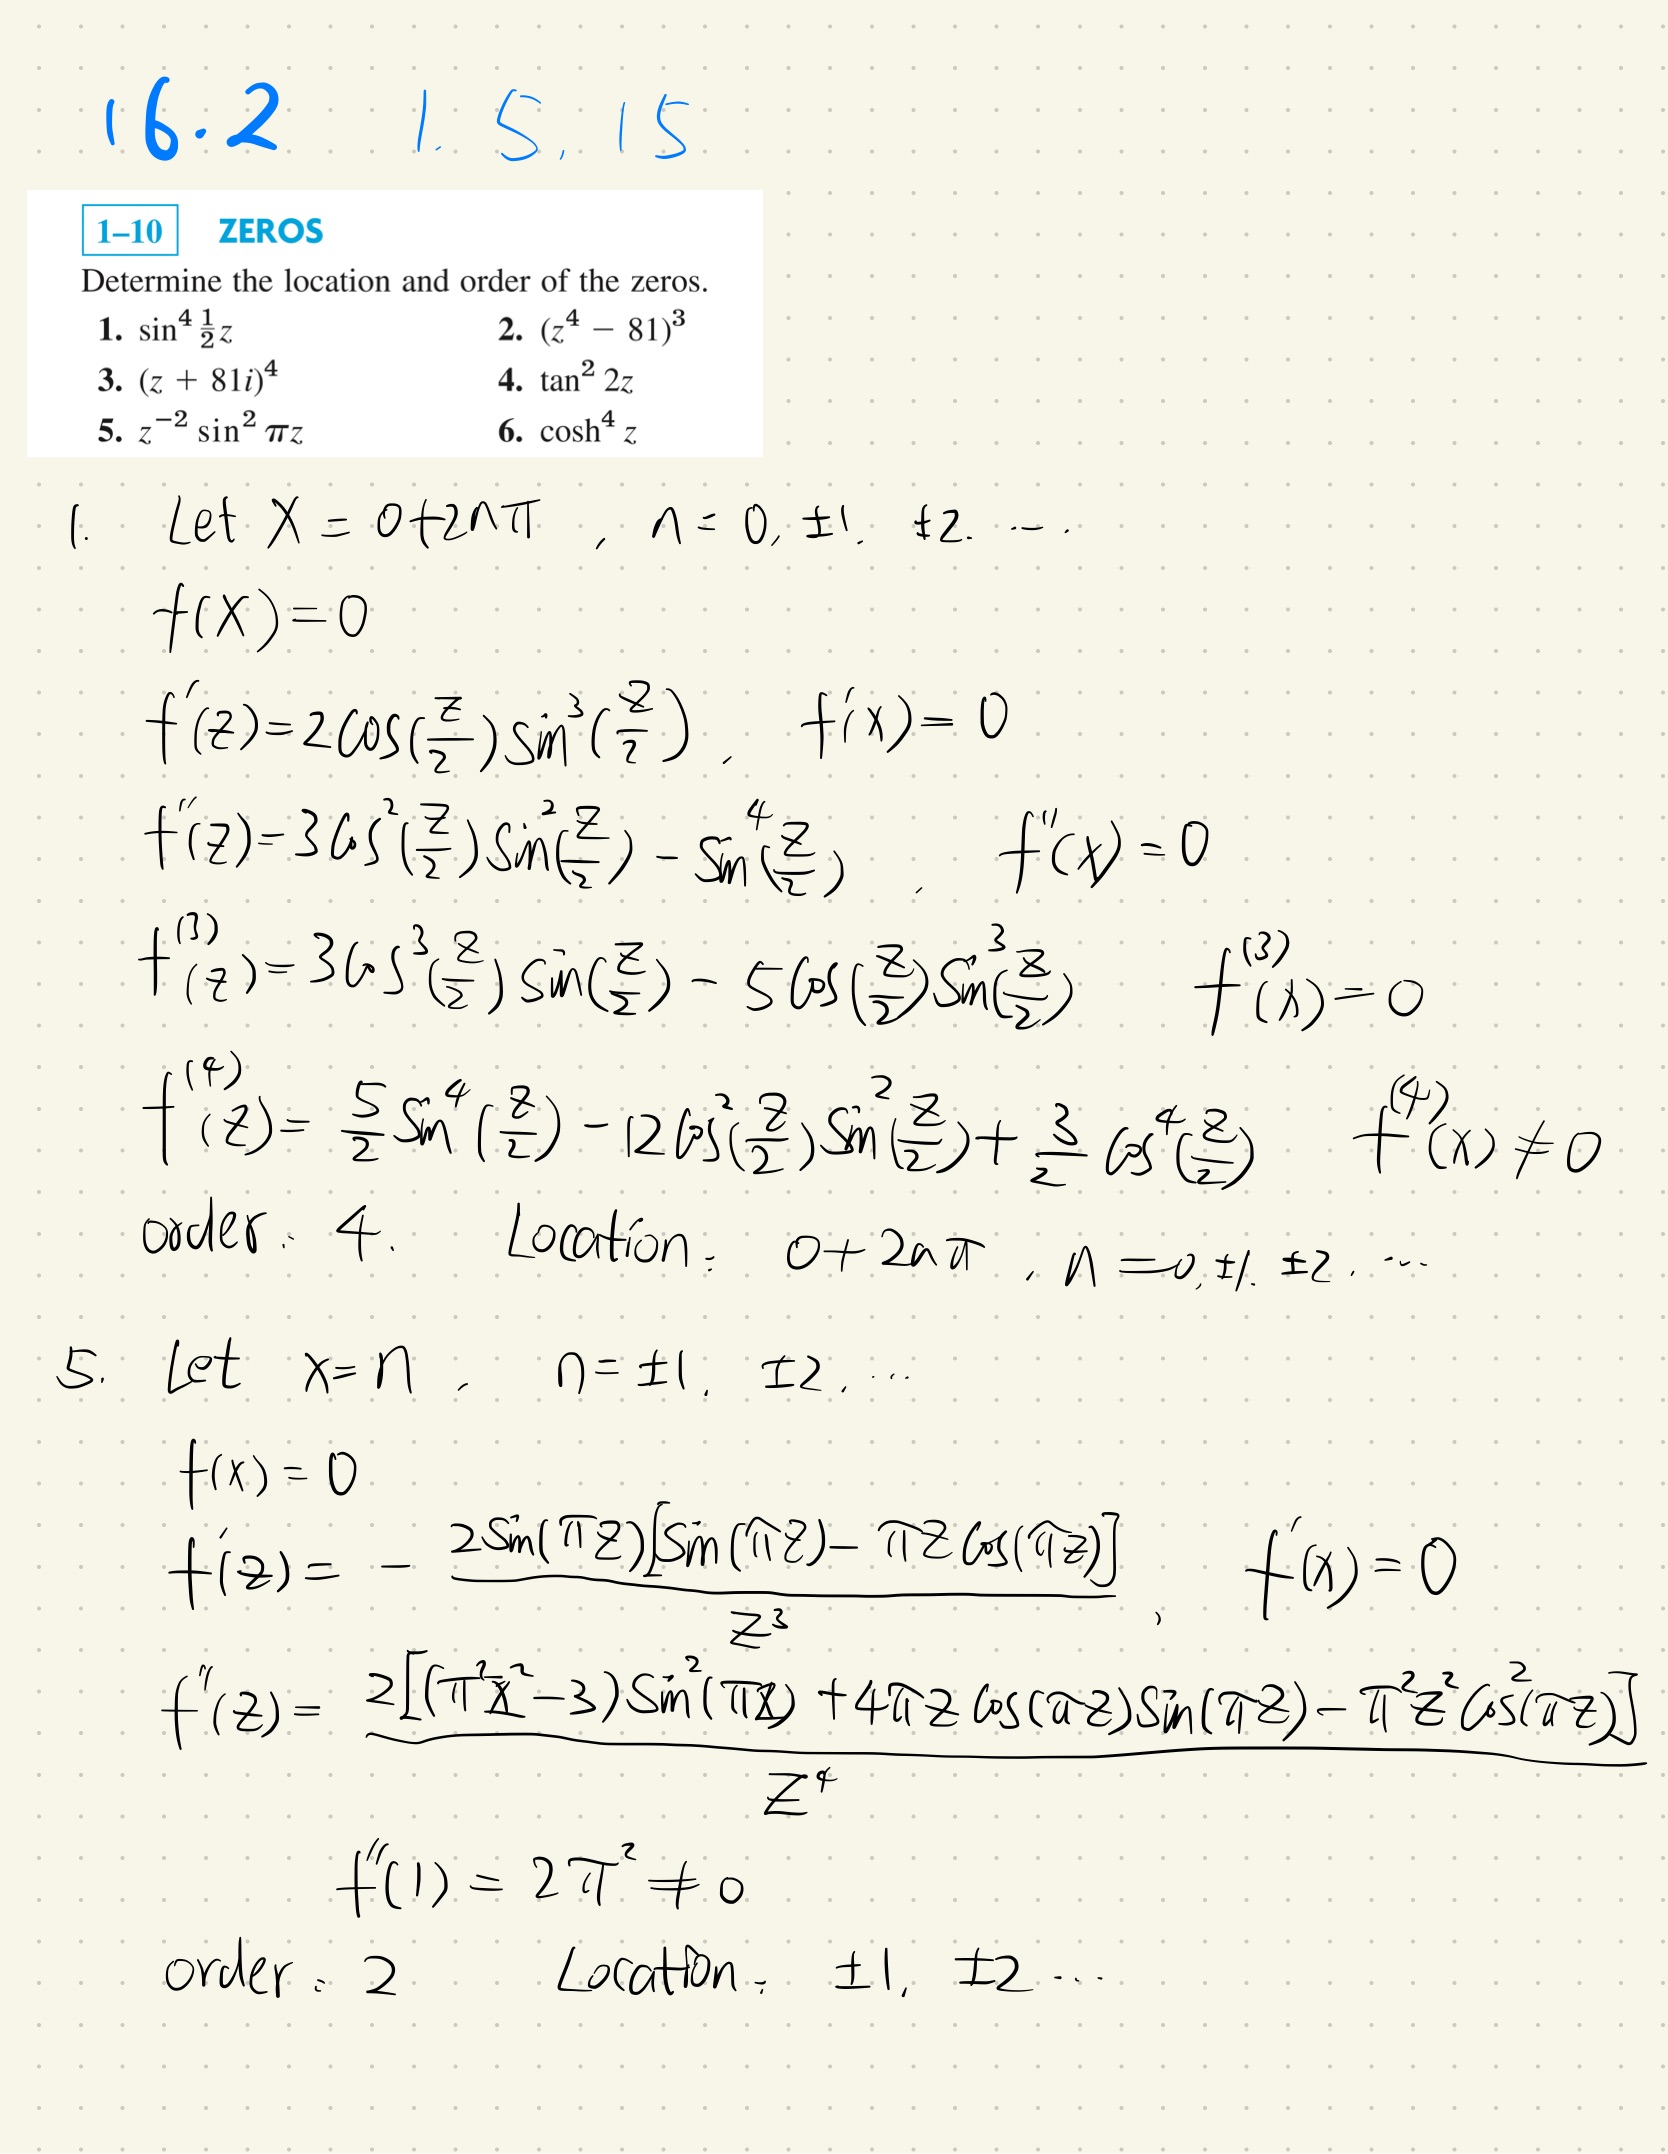 16.2 1. 5, 15
1–10 ZEROS
Determine the location and order of the zeros.
1. sin⁴ ½z 2. (z⁴ − 81)³
3. (z + 81i)⁴ 4. tan² 2z
5. z⁻² sin² πz 6. cosh⁴ z
1. Let X = 0+2nπ , n = 0, ±1. ±2. ....
f(X)=0
f'(z)=2cos(z/2)sin³(z/2), f'(x)=0
f''(z)=3cos²(z/2)sin²(z/2) - sin⁴(z/2), f''(x)=0
f⁽³⁾(z)=3cos³(z/2)sin(z/2) - 5cos(z/2)sin³(z/2) f⁽³⁾(x)=0
f⁽⁴⁾(z)= 5/2 sin⁴(z/2) - 12cos²(z/2)sin²(z/2)+ 3/2 cos⁴(z/2) f⁽⁴⁾(x)≠0
order: 4. Location: 0+2nπ, n=0,±1. ±2. ...
5. Let x=n, n=±1, ±2, ...
f(x)=0
f'(z)= - 2sin(πz)[sin(πz)-πz cos(πz)] / z³, f'(x)=0
f''(z)= 2[(π²x²-3)sin²(πz)+4πz cos(πz)sin(πz)-π²z²cos²(πz)] / z⁴
f''(1)=2π²≠0
order: 2 Location: ±1, ±2 ...